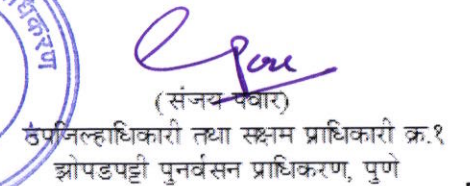 धिकरण
(संजय पवार)
उपजिल्हाधिकारी तथा सक्षम प्राधिकारी क्र.१
झोपडपट्टी पुनर्वसन प्राधिकरण, पुणे